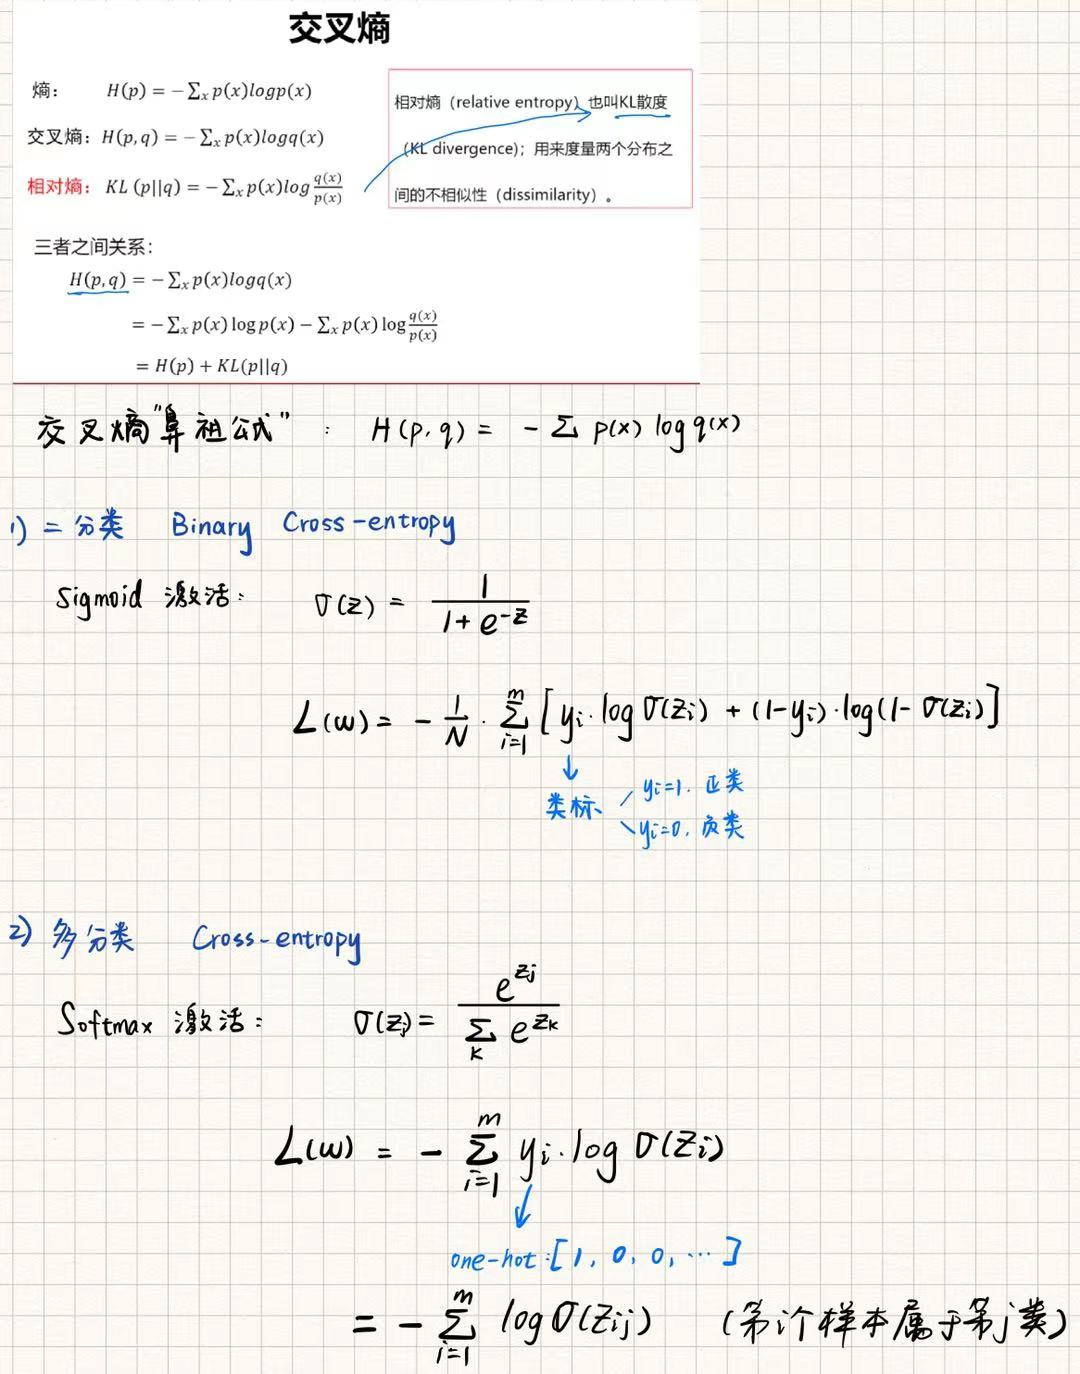 交叉熵
熵： H(p) = −∑ₓ p(x)logp(x)
交叉熵：H(p,q) = −∑ₓ p(x)logq(x)
相对熵：KL (p||q) = −∑ₓ p(x)log q(x)/p(x)
相对熵（relative entropy）也叫KL散度
（KL divergence)；用来度量两个分布之
间的不相似性（dissimilarity）。
三者之间关系：
H(p,q) = −∑ₓ p(x)logq(x)
= −∑ₓ p(x) log p(x) − ∑ₓ p(x) log q(x)/p(x)
= H(p) + KL(p||q)
交叉熵"鼻祖公式"： H(p,q) = − ∑ p(x) log q(x)
1) 二分类 Binary Cross-entropy
Sigmoid 激活： σ(z) = 1/(1+e^{-z})
L(w) = − 1/N · ∑_{i=1}^{m} [ yᵢ·log σ(zᵢ) + (1-yᵢ)·log(1- σ(zᵢ) ]
类标、 yᵢ=1. 正类
yᵢ=0. 负类
2) 多分类 Cross-entropy
Softmax 激活： σ(zⱼ) = e^{zⱼ} / ∑_k e^{z_k}
L(w) = − ∑_{i=1}^{m} yᵢ·log σ(zᵢ)
one-hot:[1, 0, 0, ⋯ ]
= − ∑_{i=1}^{m} log σ(zᵢⱼ) (第i个样本属于第j类)